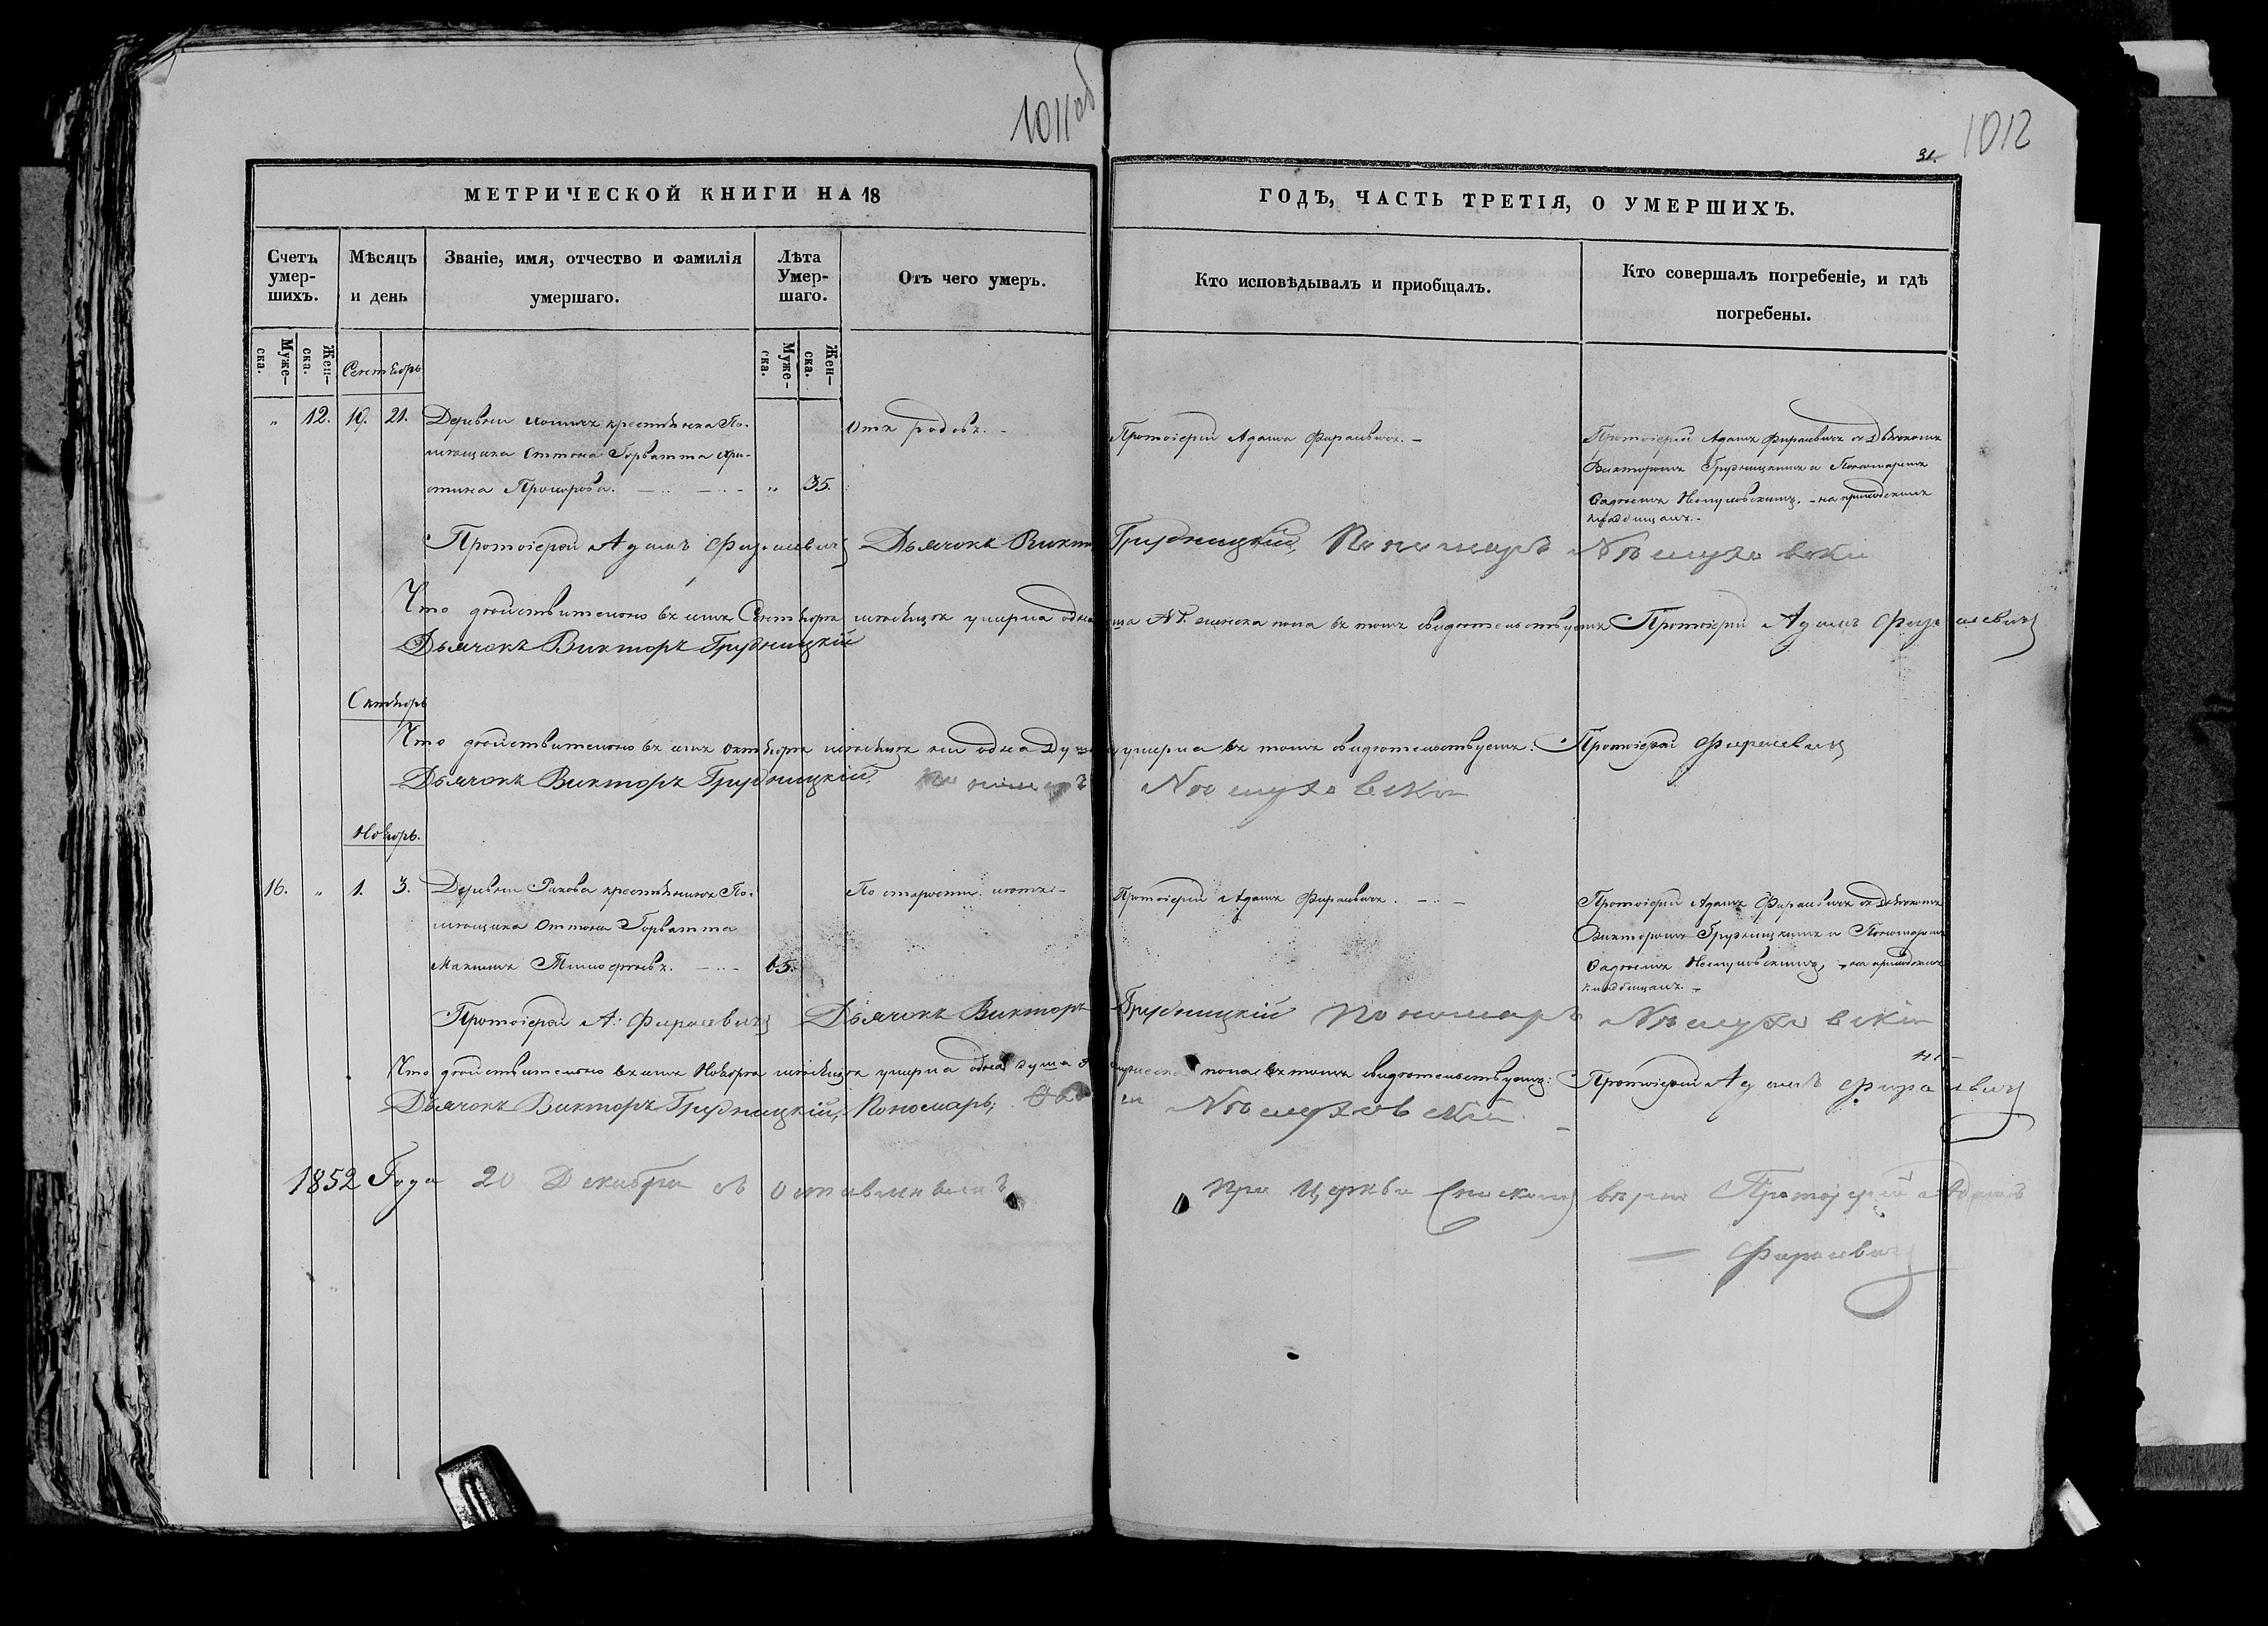 1011 об
1012
31.
МЕТРИЧЕСКОЙ КНИГИ НА 18
ГОДЪ, ЧАСТЬ ТРЕТІЯ, О УМЕРШИХЪ.
Счетъ умер-шихъ.
Мѣсяцъ и день
Званіе, имя, отчество и фамилія умершаго.
Лѣта Умер-шаго.
Отъ чего умеръ.
Кто исповѣдывалъ и пріобщалъ.
Кто совершалъ погребеніе, и гдѣ погребены.
Муже-ска.
Жен-ска.
Сентябрь
Муже-ска.
Жен-ска.
" 12. 19. 21. Деревни крестьянка По-
мѣщика Оттона Горватта Хри-
стина Прохорова. " 35.
Отъ родовъ.
Протоіерей Адамъ Фираевичъ.
Протоіерей Адамъ Фираевичъ съ Дьячкомъ
Викторомъ Грудницкимъ и Пономаремъ
на приходскомъ
кладбищѣ.
Протоіерей Адамъ Фираевичъ Дьячокъ Викторъ Грудницкій, Пономарь
Что дѣйствительно въ семъ Сентябрѣ мѣсяцѣ умерла одна душа женска пола въ томъ свидѣтельствуемъ Протоіерей Адамъ Фираевичъ
Дьячокъ Викторъ Грудницкій
Октябрь
Что дѣйствительно въ семъ Октябрѣ мѣсяцѣ ни одна душа не умерла въ томъ свидѣтельствуемъ: Протоіерей Фираевичъ
Дьячокъ Викторъ Грудницкій, Пономарь
Ноябрь.
16. " 1. 3. Деревни Ракова крестьянинъ По-
мѣщика Оттона Горватта
Максимъ Тимофеевъ. 65.
По старости лѣтъ
Протоіерей Адамъ Фираевичъ.
Протоіерей Адамъ Фираевичъ съ Дьячкомъ
Викторомъ Грудницкимъ и Пономаремъ
на приходскомъ
кладбищѣ.
Протоіерей А: Фираевичъ Дьячокъ Викторъ Грудницкій Пономарь
Что дѣйствительно въ семъ Ноябрѣ мѣсяцѣ умерла одна душа мужеска пола въ томъ свидѣтельствуемъ: Протоіерей Адамъ Фираевичъ
Дьячокъ Викторъ Грудницкій, Пономарь;
1852 Года 20 Декабря съ оставленнымъ при Церкви спискомъ вѣрно Протоіерей Адамъ
Фираевичъ